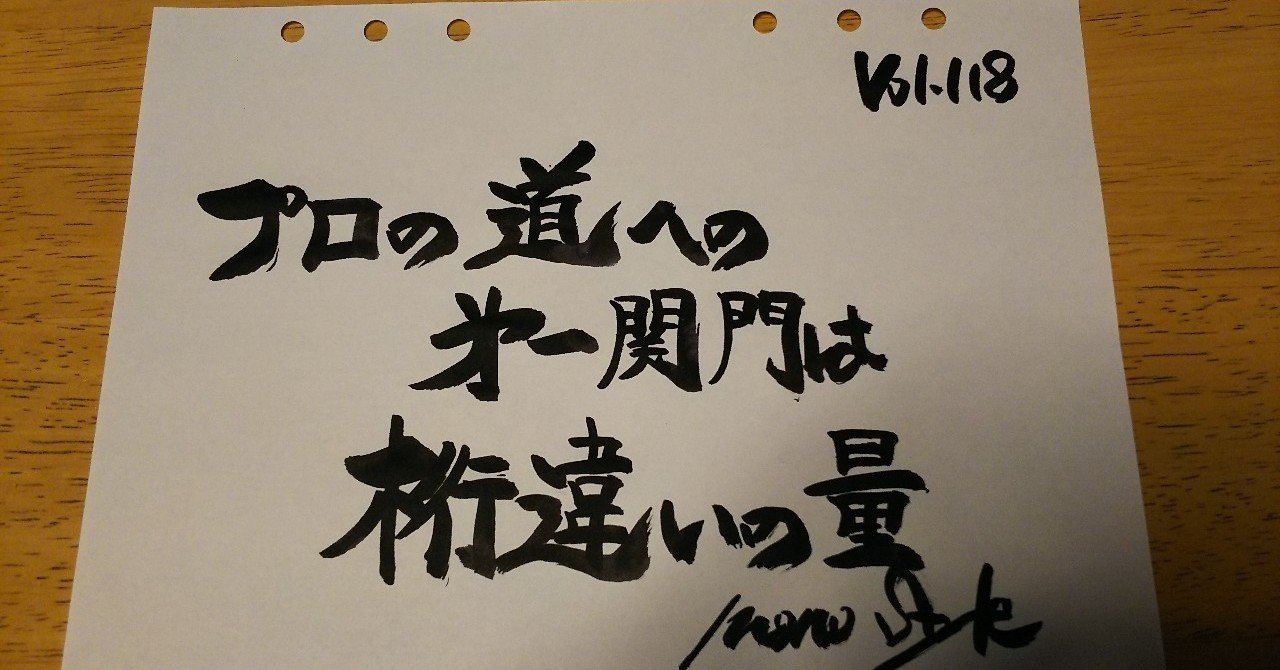 Vol.118
プロの道への
第一関門は
桁違いの量
mono Style